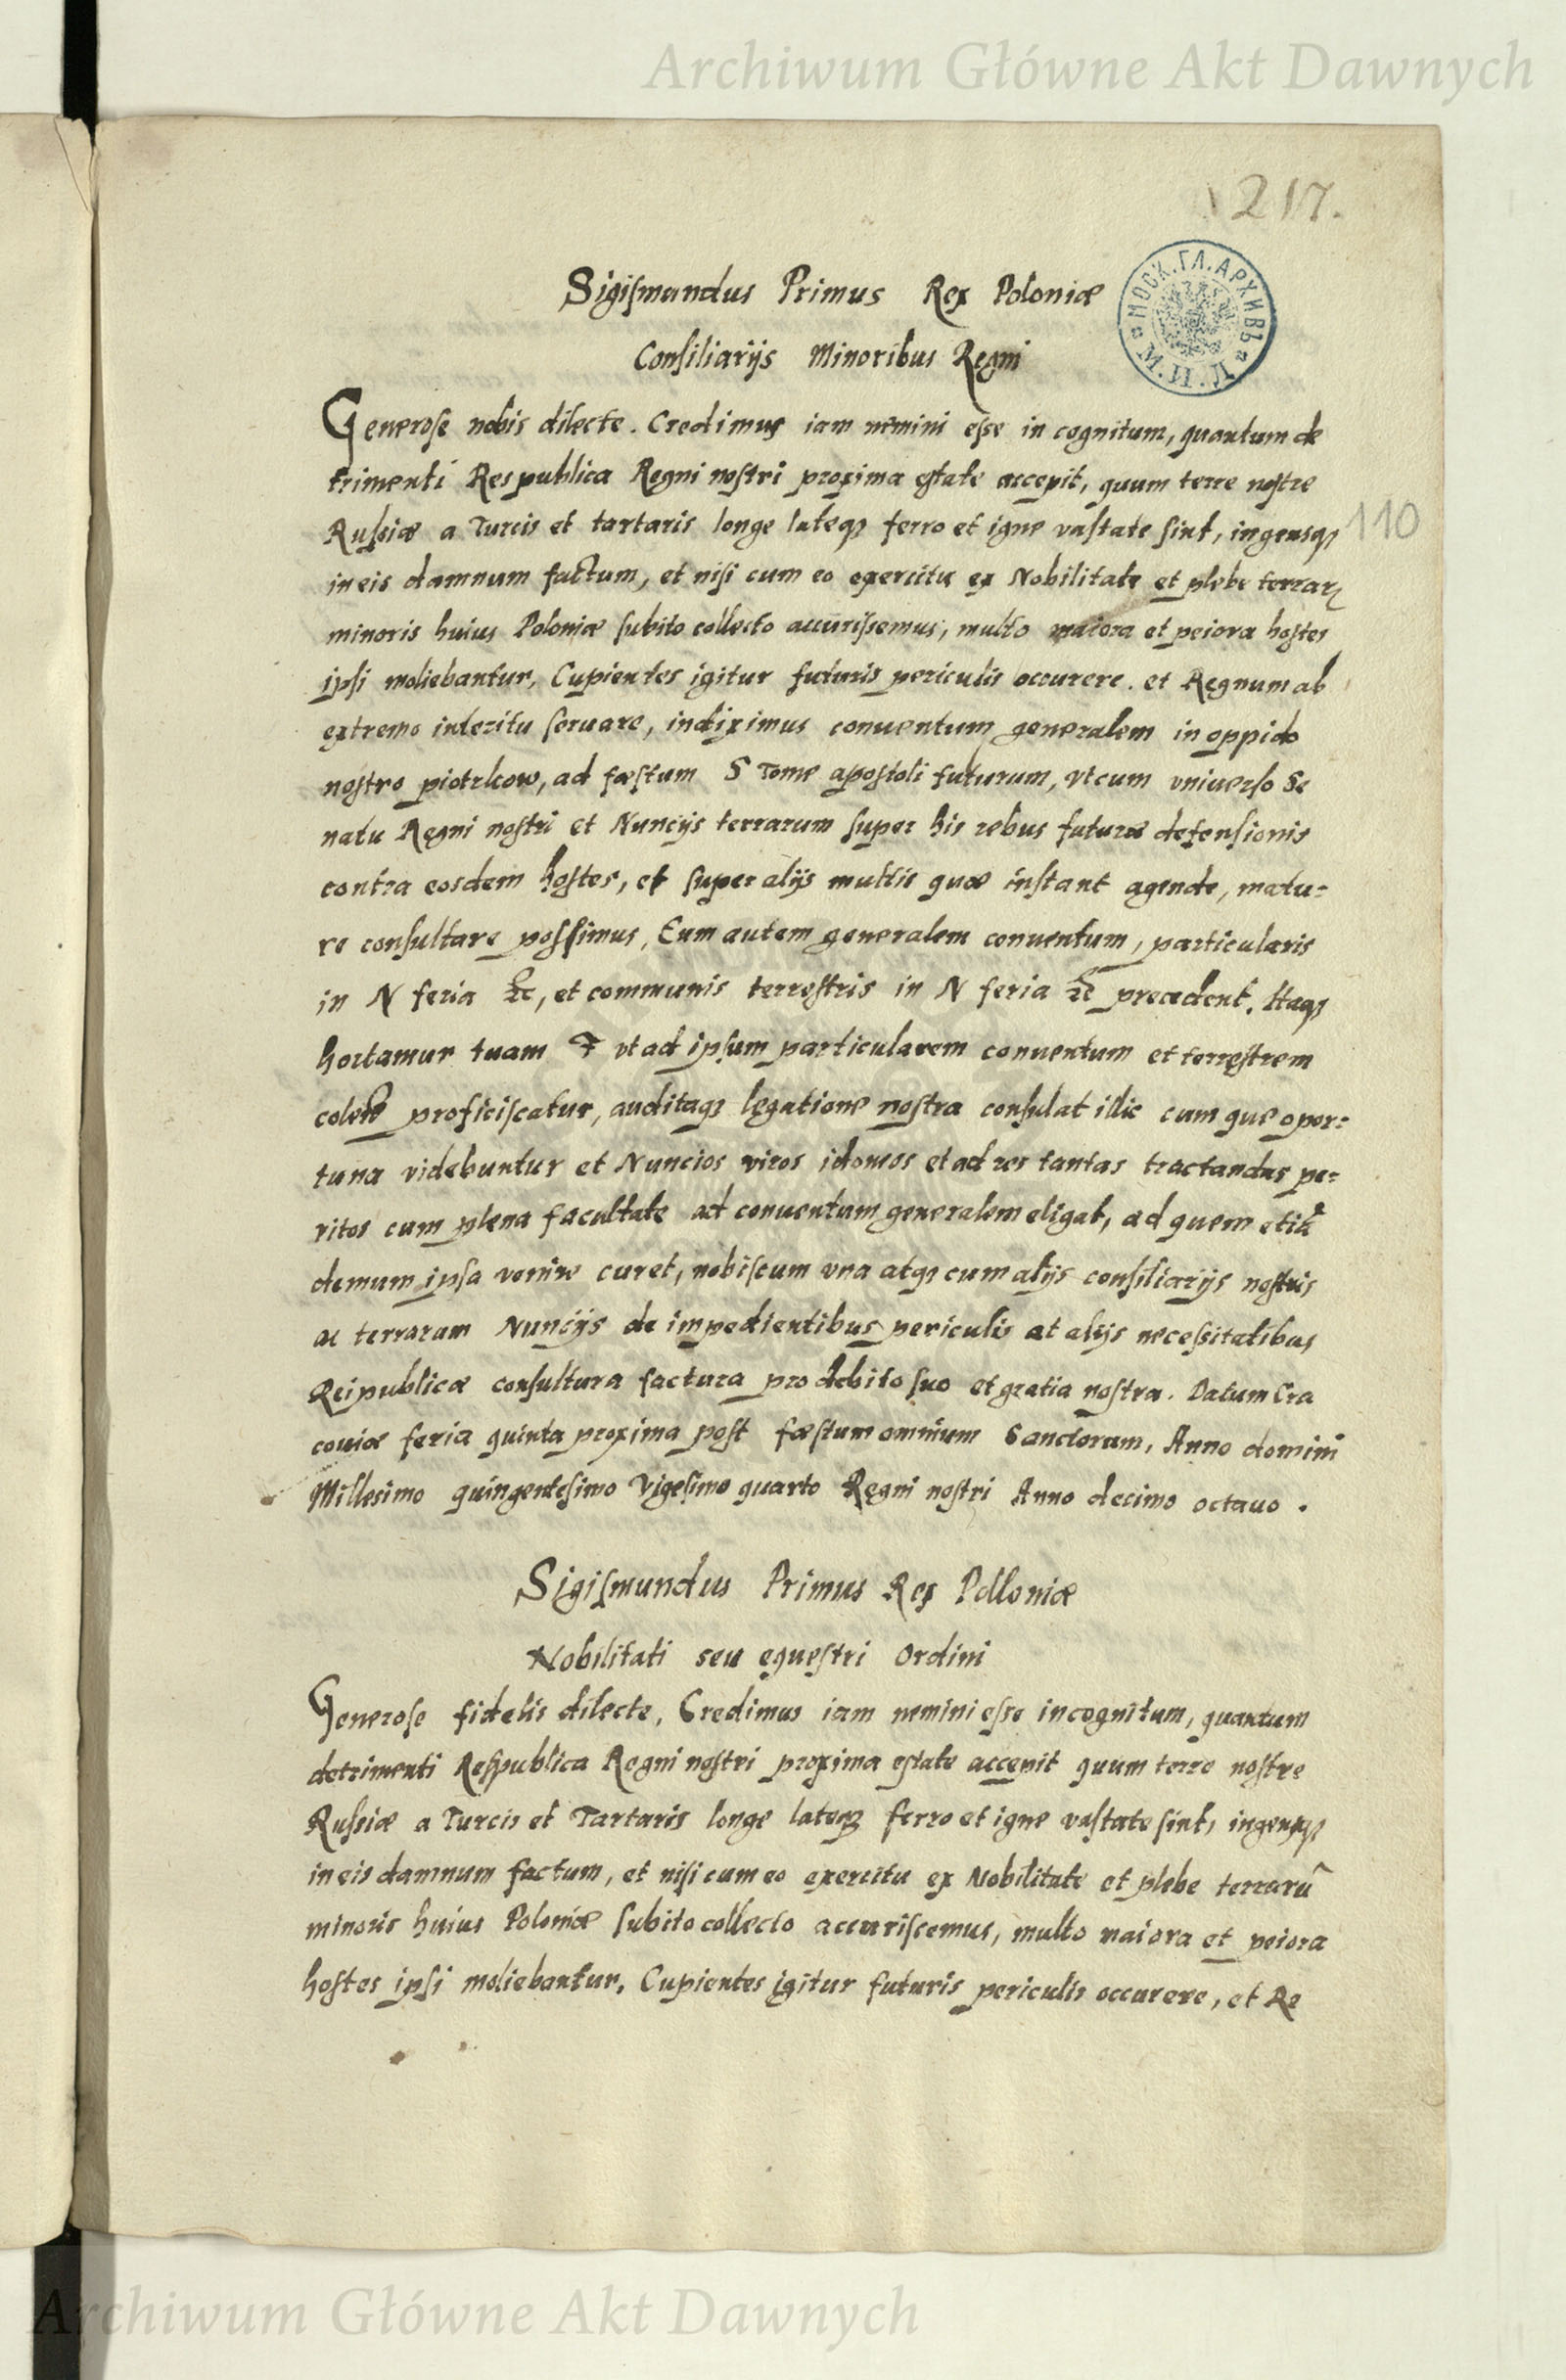 Archiwum Główne Akt Dawnych
217.
Sigismundus Primus Rex Poloniæ
МОСК. ГЛ. АРХИВЪ
М. И. Д.
Consiliarijs Minoribus Regni
Generose nobis dilecte. Credimus iam nemini esse in cognitum, quantum de
trimenti Respublica Regni nostri proxima estate accepit, quum terre nostre
Russiæ a Turcis et tartaris longe lateqz ferro et igne vastate sint, ingensqz
110
in eis damnum factum, et nisi cum eo exercitu ex Nobilitate et plebe terrarꝝ
minoris huius Poloniæ subito collecto accurissemus, multo maiora et peiora hostes
ipsi moliebantur, Cupientes igitur futuris periculis occurere. et Regnum ab
extremo interitu seruare, indiximus conuentum generalem in oppido
nostro piotrkow, ad fæstum S Tome apostoli futurum, vt cum vniuerso Se
natu Regni nostri et Nuncijs terrarum super his rebus futuræ defensionis
contra eosdem hostes, et super alijs multis quæ instant agende, matu-
re consultare possimus, Eum autem generalem conuentum, particularis
in N feria etc, et communis terrestris in N feria etc precedent. Itaqz
hortamur tuam F vt ad ipsum particularem conuentum et terrestrem
proficiscatur, auditaqz legatione nostra consulat illic cum que opor-
tuna videbuntur et Nuncios viros idoneos et ad res tantas tractandas pe-
ritos cum plena facultate ad conuentum generalem eligat, ad quem etiã
demum ipsa venire curet, nobiscum vna atqz cum alijs consiliarijs nostris
ac terrarum Nuncijs de impedientibus periculis at alijs necessitatibus
Reipublicæ consultura factura pro debito suo et gratia nostra. Datum Cra
couiæ feria quinta proxima post fæstum omnium Sanctorum, Anno domini
Millesimo quingentesimo Vigesimo quarto Regni nostri Anno decimo octauo.
Sigismundus Primus Rex Polloniæ
Nobilitati seu equestri Ordini
Generose fidelis dilecte, Credimus iam nemini esse incognitum, quantum
detrimenti Respublica Regni nostri proxima estate accepit quum terre nostre
Russiæ a Turcis et Tartaris longe lateqz ferro et igne vastate sint, ingensqz
in eis damnum factum, et nisi cum eo exercitu ex Nobilitate et plebe terrarũ
minoris huius Poloniæ subito collecto accuriscemus, multo maiora et peiora
hostes ipsi moliebantur, Cupientes igitur futuris periculis occurere, et Re
Archiwum Główne Akt Dawnych